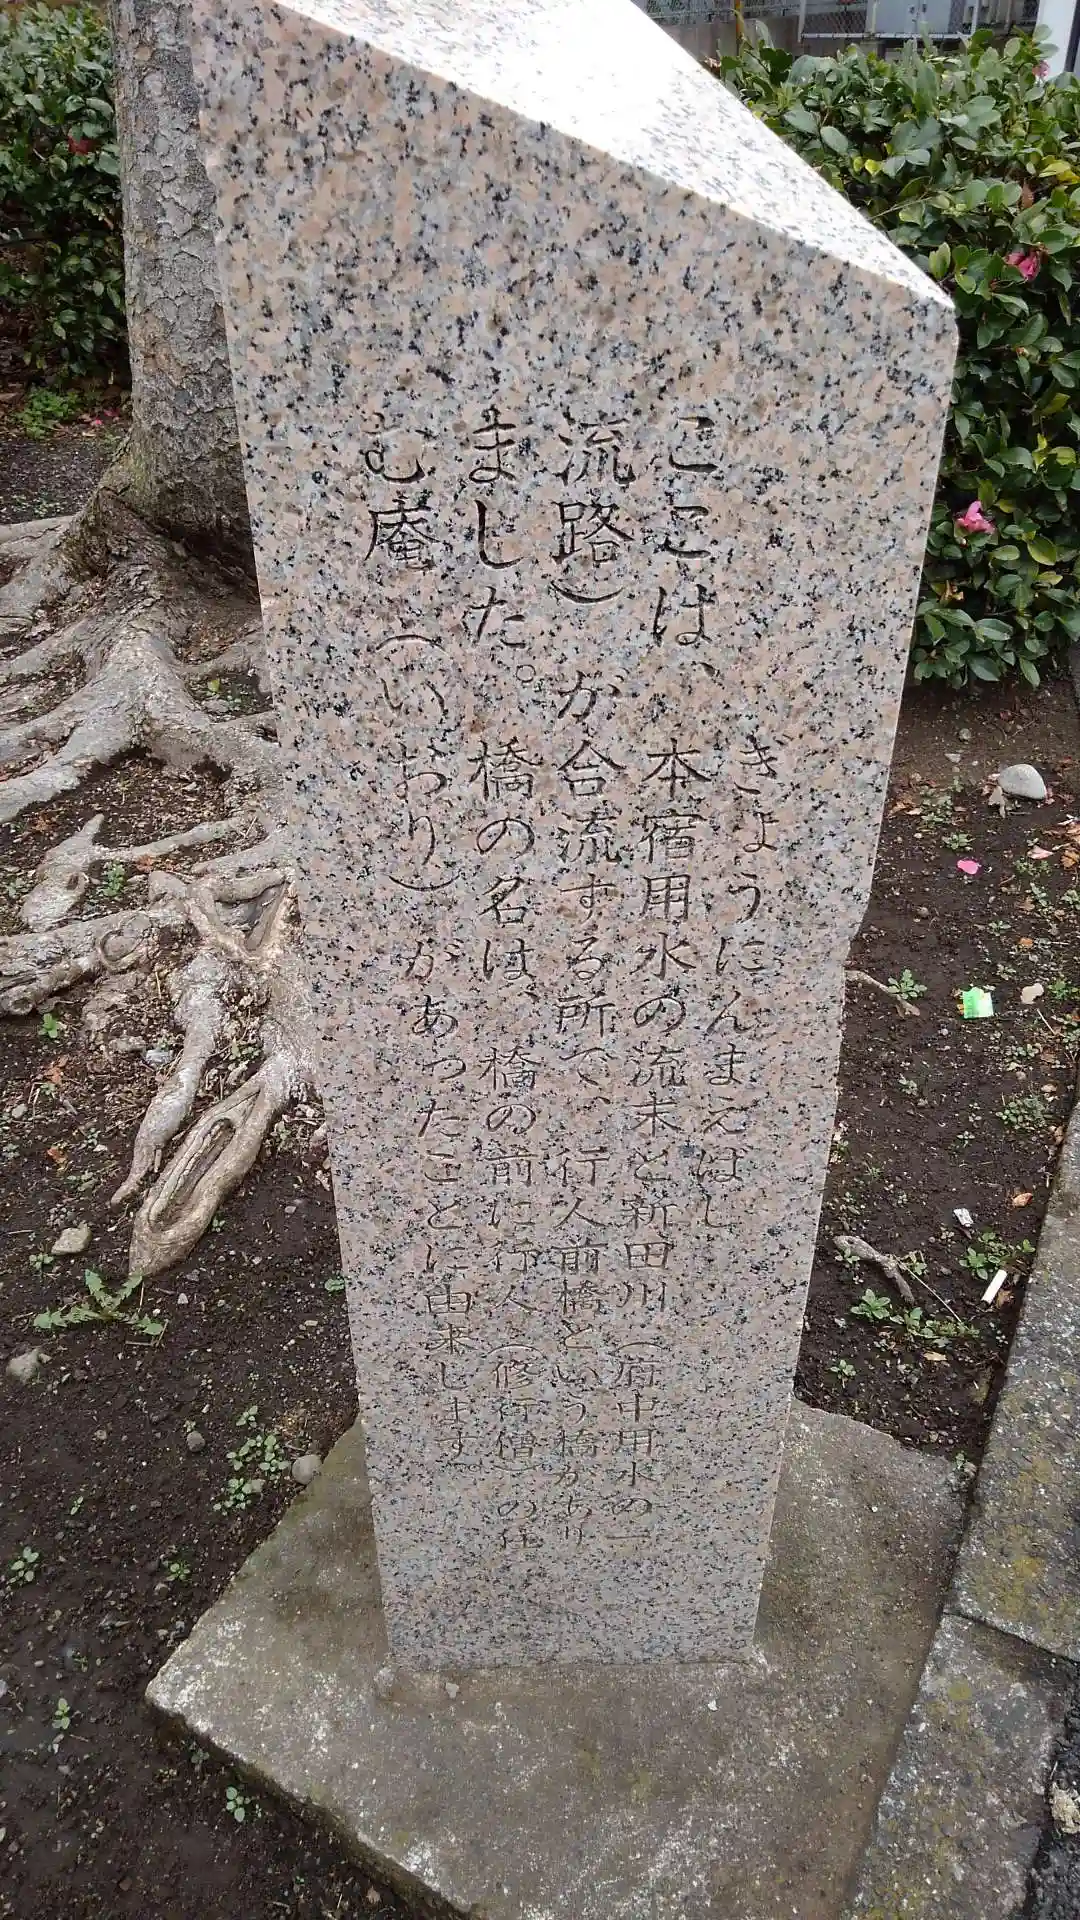 きょうにんまえばし
ここは、本宿用水の流末と新田川（府中用水の一
流路）が合流する所で、行人前橋という橋があり
ました。橋の名は、橋の前に行人（修行僧）の住
む庵（いおり）があったことに由来します。